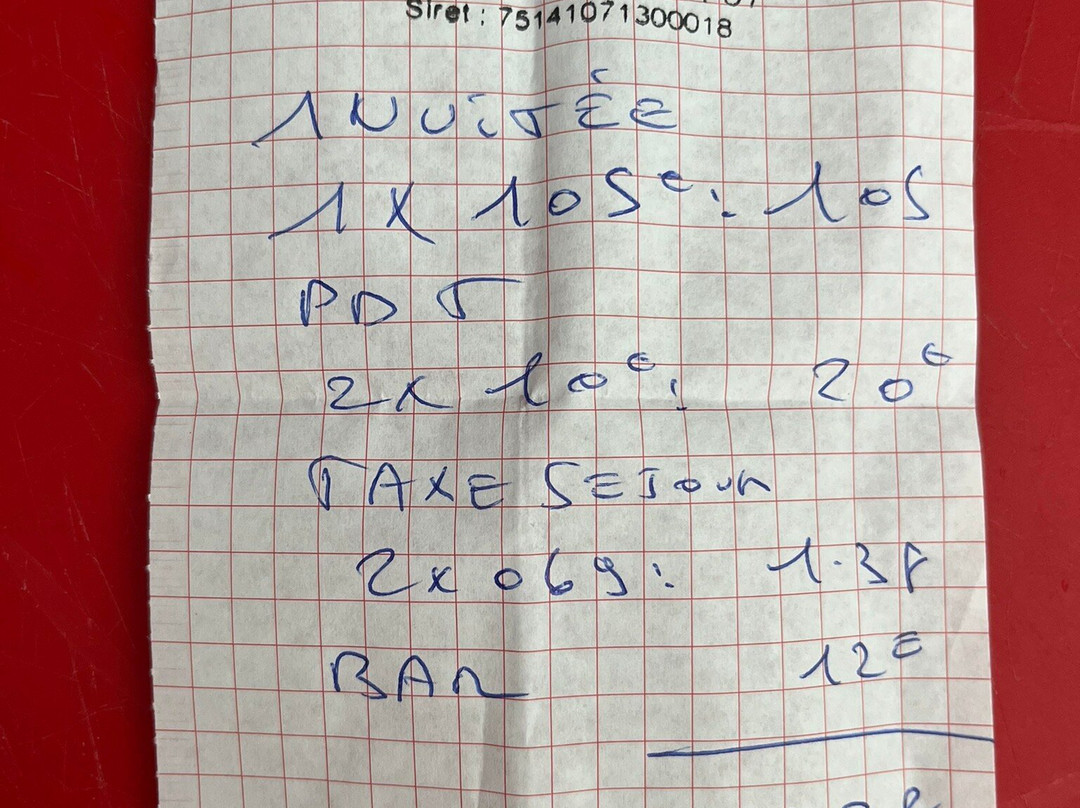 Siret : 75141071300018
1 NUiTÉE
1 X 105€ : 105
PDT
2x 10€ : 20€
TAXE SEJOUR
2x 069 : 1.38
BAR 12€